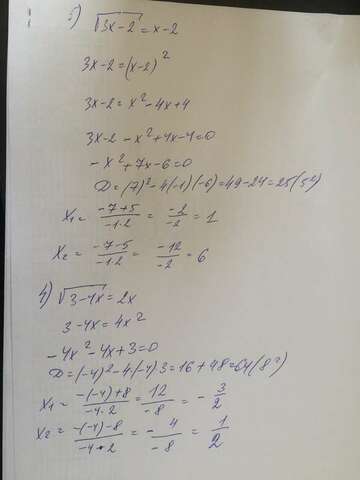 3) √3x-2 = x-2
3x-2=(x-2)²
3x-2=x²-4x+4
3x-2-x²+4x-4=0
-x²+7x-6=0
D=(7)²-4(-1)(-6)=49-24=25(5²)
x₁= -7+5/-1·2 = -2/-2 = 1
x₂= -7-5/-1·2 = -12/-2 = 6
4) √3-4x=2x
3-4x=4x²
-4x²-4x+3=0
D=(-4)²-4(-4)3=16+48=64(8²)
x₁= -(-4)+8/-4·2 = 12/-8 = -3/2
x₂= -(-4)-8/-4·2 = -4/-8 = 1/2